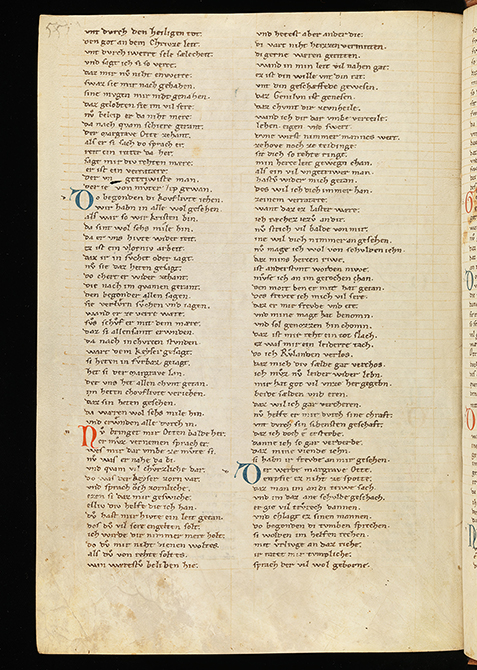 557
vnt durch den heiligen tot.
den got an dem Chrivze leit.
vnt durch iwerre sele sælecheit.
vnd sagt ich si so verre.
daz mir nv niht enwerre.
swaz sie mir nach gehabin.
sine mvgen mir niht genahen.
daz gelobten sie im vil sere.
nv beleip er da niht mere.
da nach quam schiere gerant.
der margrave Otte zehant.
als er si sach do sprach er.
reit ein ritter da her.
sagt mir div rehten mere.
er ist ein verratere.
der
der ie von mvter lip gewan.
Do begonden di kovflivte iehen.
wir habn in alle wol gesehen.
als war so wir kristen bin.
da sint wol sehs mile hin.
da er vns hivte wider reit.
ez ist ein vlorniv arbeit.
daz ir in svchet oder iagt.
nv sie daz heten gesagt.
do chert er wider zehant.
die nach im quamen gerant.
den begonder allen sagen.
sie verlvrn svchen vnd iagen.
wand er ze verre were.
svs schvf er mit dem mere.
daz si allesamt erwnden.
da nach in chvrcen stvnden.
wart dem keyser gesagt.
si hetin in fvrbaz geiagt.
her si der margrave hin.
der vns het allen chvnt getan.
im hetin chovflivte veriehen.
daz sin heten gesehen.
da waren wol sehs mile hin.
vnd erwnden alle dvrch in.
Nv bringet mir Otten balde her.
er mvz vernemen sprach er.
wes mir daz vmbe ze mvte si.
nv was er nahe da bi.
vnd quam vil chvrzliche dar.
do was der keyser zorn var.
vnd sprach och zornliche.
ezen si daz mir geswiche.
elliv div helfe die ich han.
dv hast mir hivte ein leit getan.
des dv vil sere engelten solt.
ich wirde dir nimmer mere holt.
do dv mir niht dienen woltes.
als dv von rehte soltes.
wan werestv beliben hie.
vnd hetest aber ander die.
di vart niht herren vermiten.
di gerne waren geriten.
wand in min leit vil nahen gat.
ez ist din wille vnt din rat.
vnt din geschæffede gewesen.
daz Genelun ist genesen.
daz chvmt dir zevnheile.
wand ich dir dar vmbe verteile.
lehen eigen vnd swert.
dvne wirst nimmer mannes wert.
zehove noch ze teidinge.
sit dich so rehte ringe.
min herze leit gewegen chan.
als ein vil vngetriwer man.
hastv wider mich getan.
des wil ich dich immer han.
zeinem verratere.
want daz er laster were.
ich richez iezv an dir.
nv strich vil balde von mir.
ine wil dich nimmer an gesehen.
nv mage ich wol von schvlden iehn.
daz mins herzen riwe.
ist anderstvnt worden niwe.
mvse ich an im gerochen han.
den mort den er mit hat getan.
des frevte ich mich vil sere.
daz er mir frevde vnd ere.
vnd mine mage hat benomn.
vnd sol genozzen hin chomn.
daz ist mir reht ein tot slach.
ez was mir ein leiderre tach.
do ich Rvlanden verlos.
daz mich div sælde gar verchos.
ich mvz nv leider wider lebn.
mir hat got vil vnze her gegebn.
beide sælden vnd eren.
daz wil ich gar vercheren.
nv helfe er mir durch sine chraft.
vnt durch sin svbersten geschaft.
daz ich doch e ersterbe.
danne ich so gar verderbe.
daz mine viende iehn.
si habn ir frevde an mir gesehen.
Der werbe margrave Otte.
enpfie ez niht ze spotte.
daz man im an di triwe sach.
vnd im daz ane schvlde geschach.
er gie vil trvrech dannen.
vnd chlagt ez sinen mannen.
do begonden di tvmben sprechen.
si wolden im helfen rechen.
mit vrlivge an daz riche.
ir ratet mir tvmpliche.
sprach der vil wol geborne.